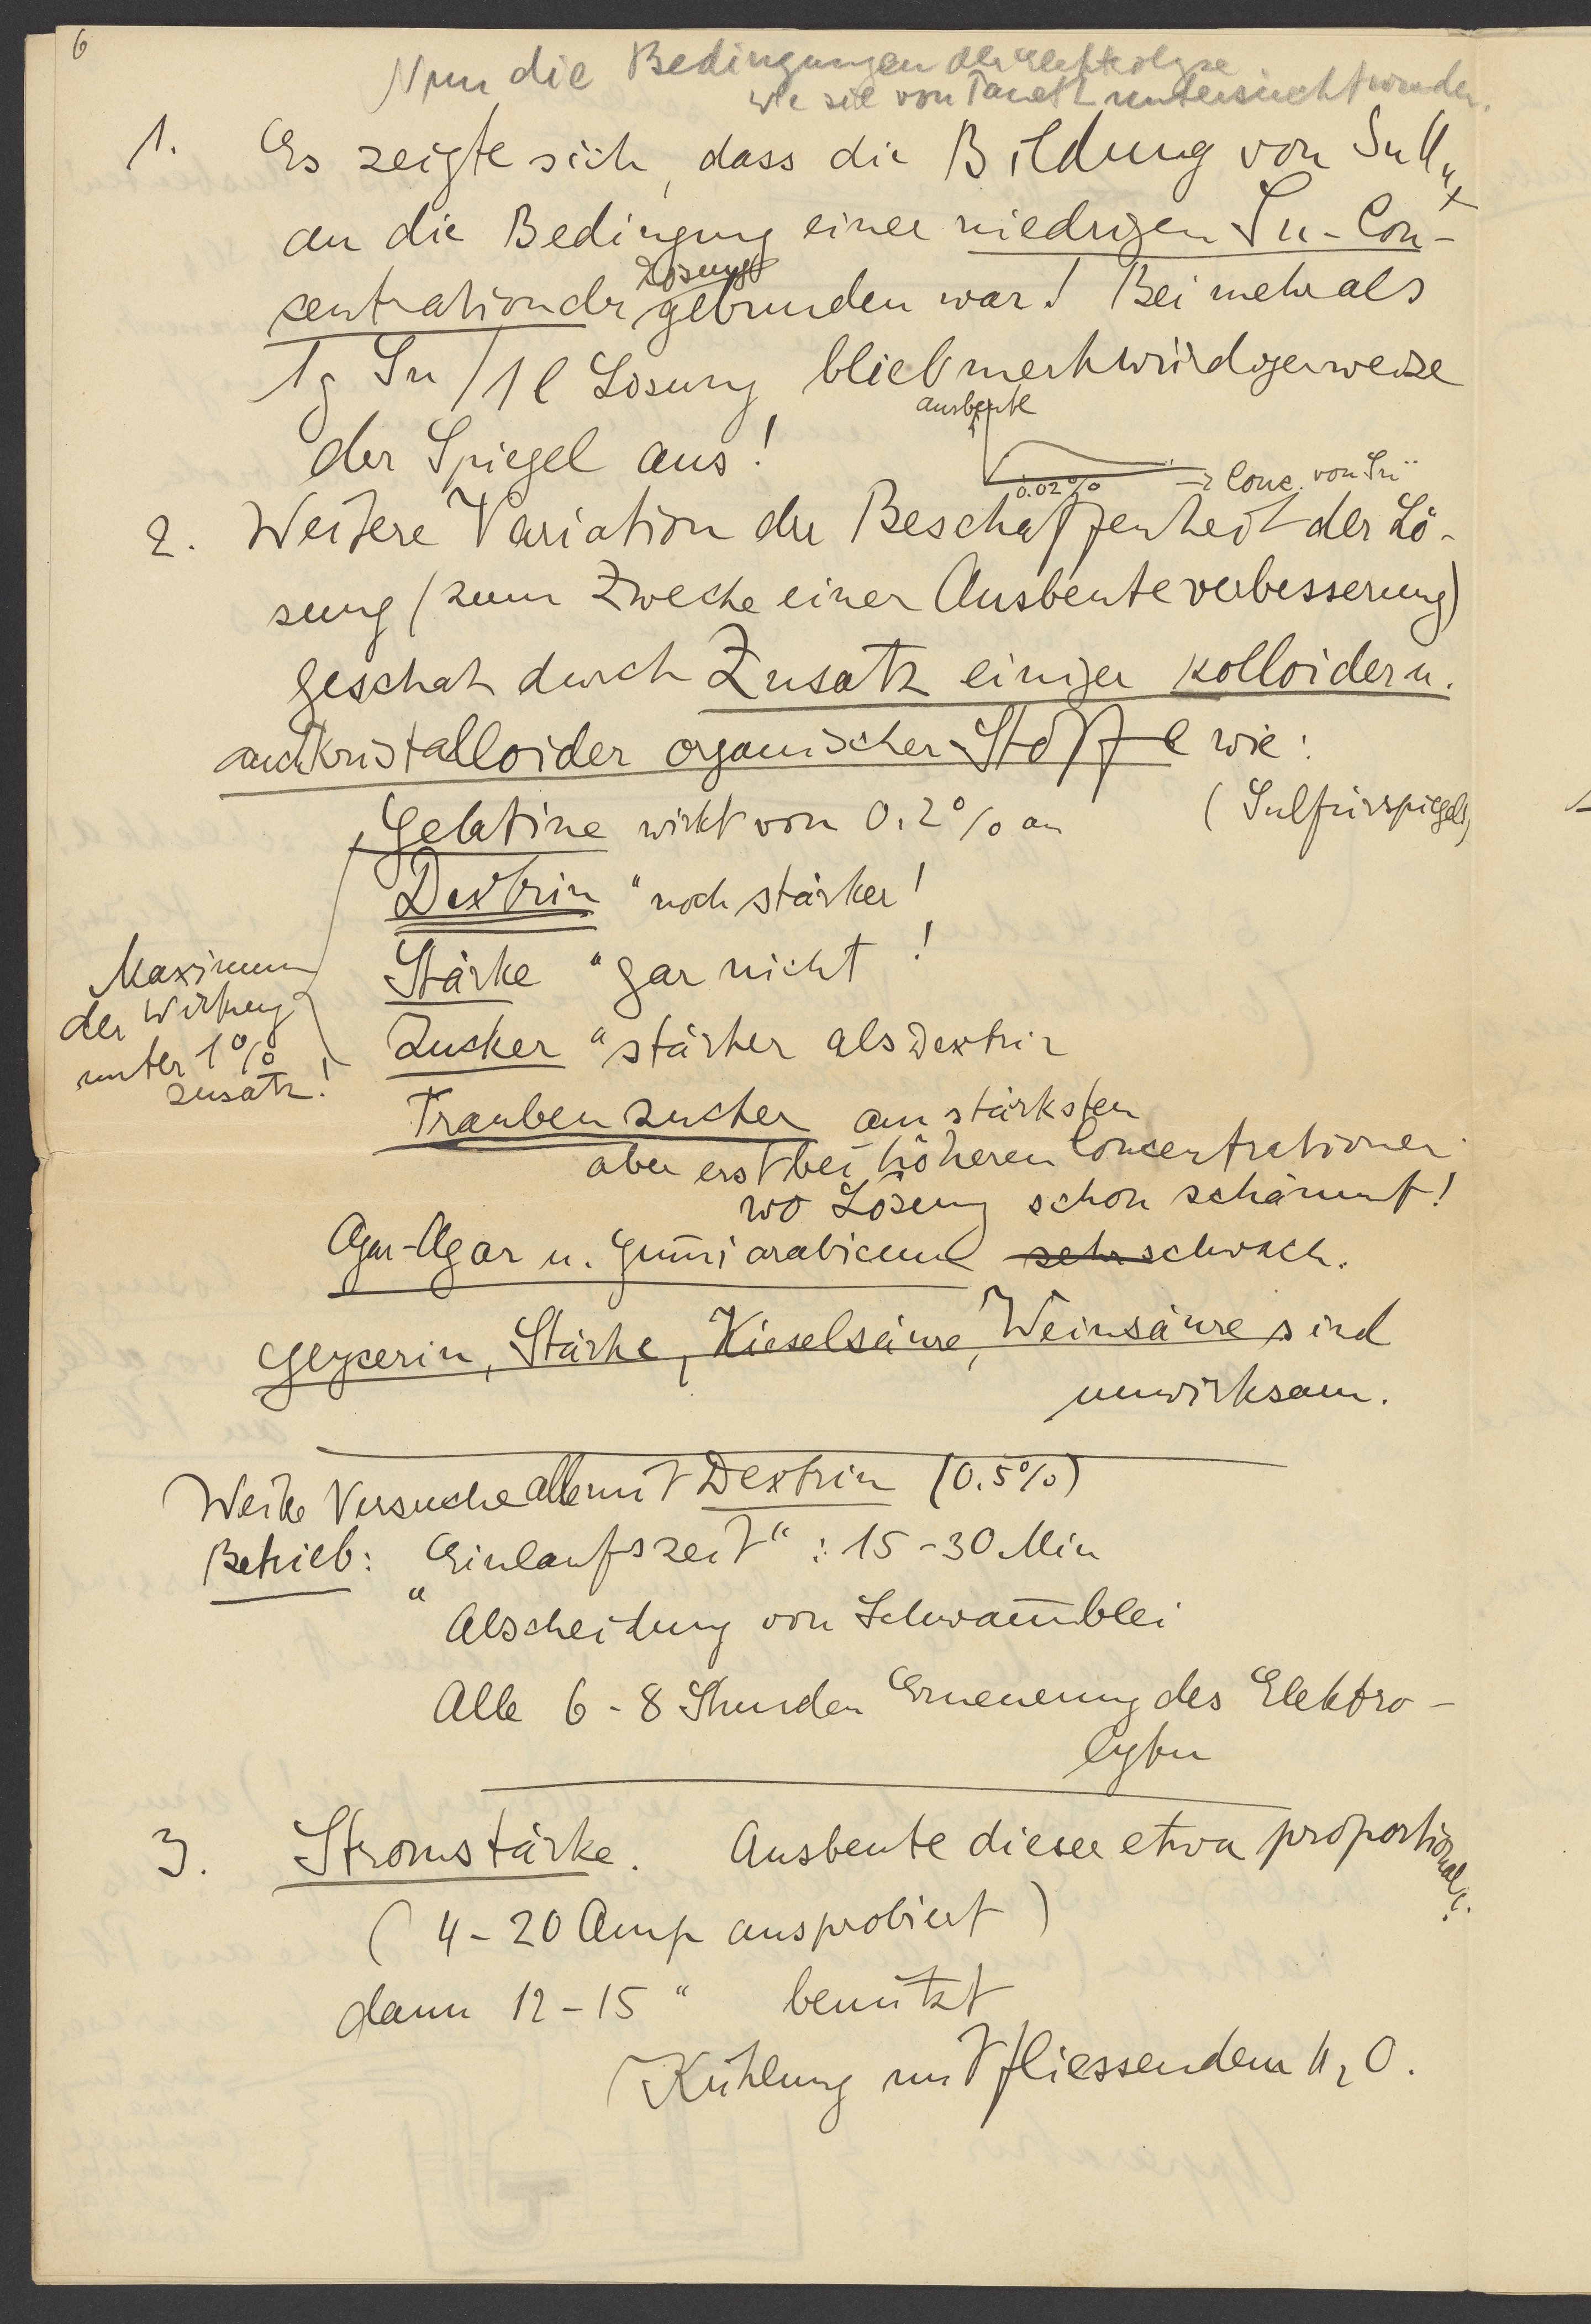 6
Nun die Bedingungen der Elektrolyse
wie sie von Paneth untersucht wurden.
1. Es zeigte sich, dass die Bildung von SnH₄
an die Bedingung einer niedrigen Sn-Con-
zentration der Lösung gebunden war! Bei mehr als
1g Sn/1l Lösung blieb merkwürdigerweise
der Spiegel aus!
Ausbeute
0.02% → Conc. von Sn¨
2. Weitere Variation der Beschaffenheit der Lö-
sung (zum Zwecke einer Ausbeuteverbesserung)
geschah durch Zusatz einiger kolloider u.
auch kristalloider organischer Stoffe wie:
Gelatine wirkt von 0.2% an (Sulfürspiegels)
Dextrin " noch stärker!
Stärke " gar nicht!
Zucker " stärker als Dextrin
Maximum
der Wirkung
unter 1%
Zusatz!
Traubenzucker am stärksten
aber erst bei höheren Concentrationen
wo Lösung schon schäumt!
Agar-Agar u. Gum̄i arabicum sehr schwach.
Glycerin, Stärke, Kieselsäure, Weinsäure sind
unwirksam.
Weite Versuche alle mit Dextrin (0.5%)
Betrieb: "Einlaufszeit": 15-30 Min
Abscheidung von Schwam̄blei
Alle 6-8 Stunden Erneuerung des Elektro-
lyten
3. Stromstärke. Ausbeute dieser etwa proportional.
(4-20 Amp ausprobiert)
dann 12-15 " benützt
Kühlung mit fliessendem H₂O.